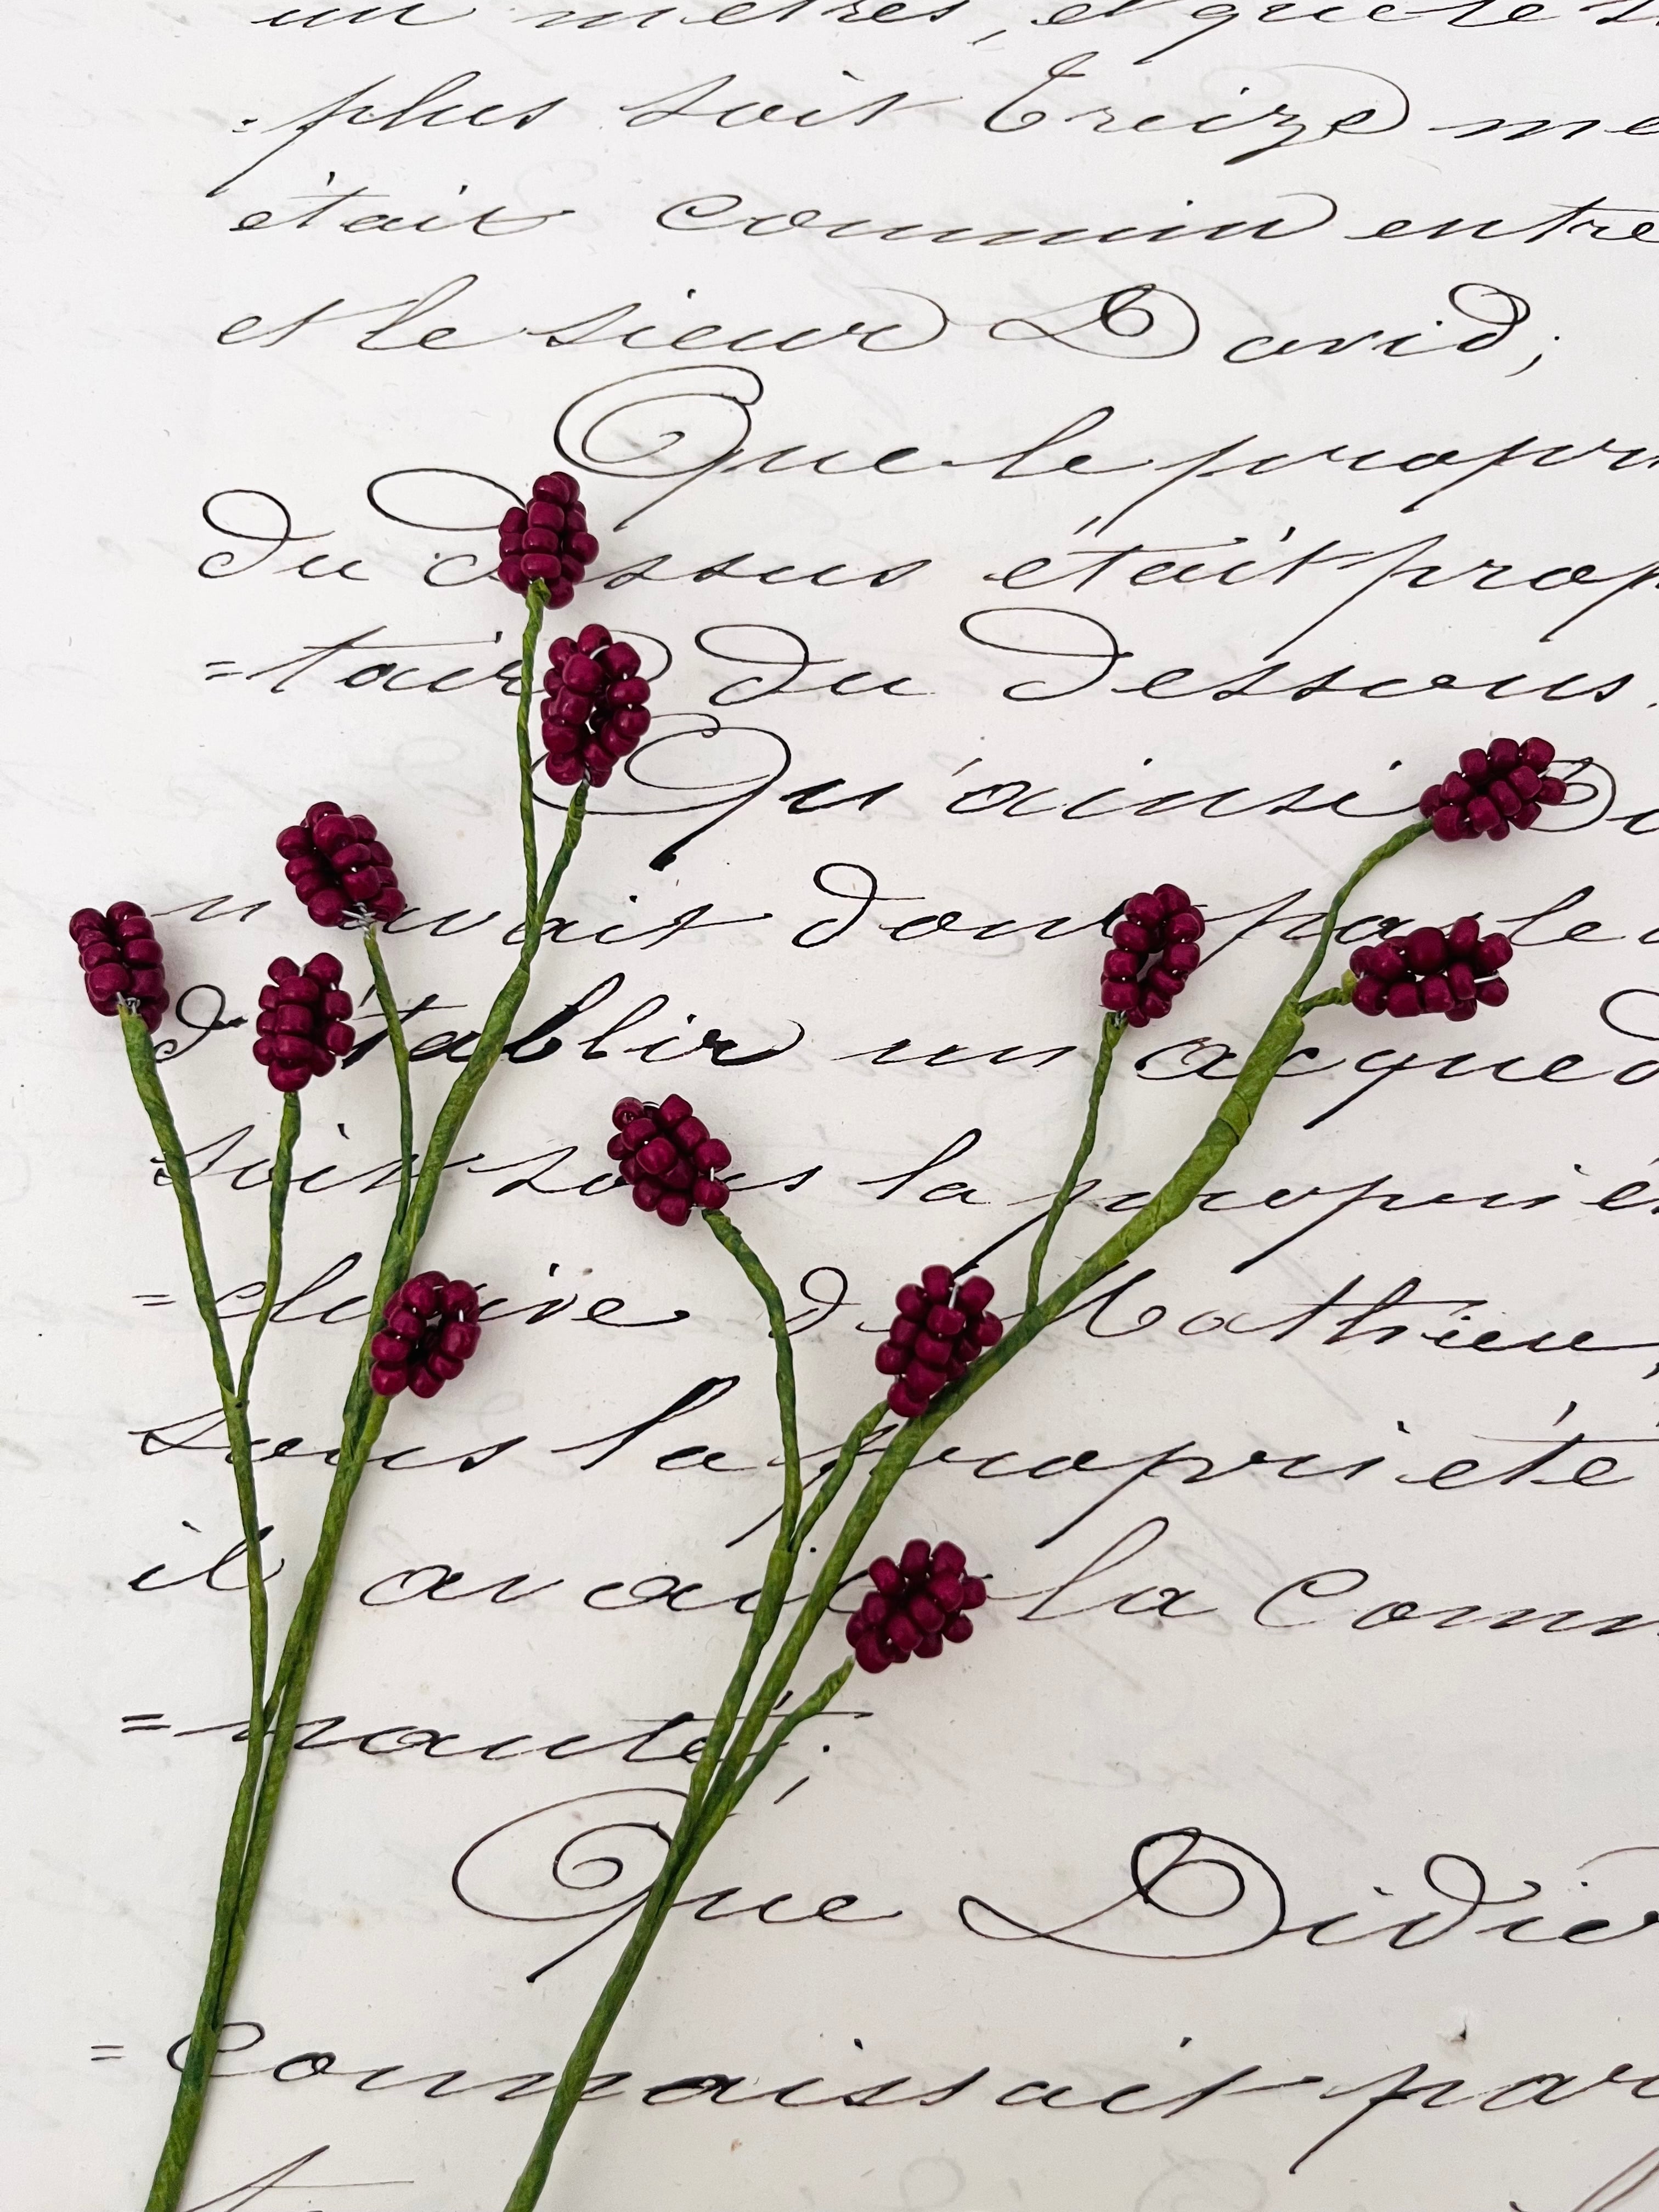 un metres, et que le
=plus soit treize
était commun entre
et le sieur David;
Que le
du dessus était
=taire du dessous.
Qu'ainsi
n'avait donc pas le
d'établir un
soit sous la
=clusive de Mathieu,
sous la propriété
il avait la
=nauté;
Que Didier
=Connaissait par